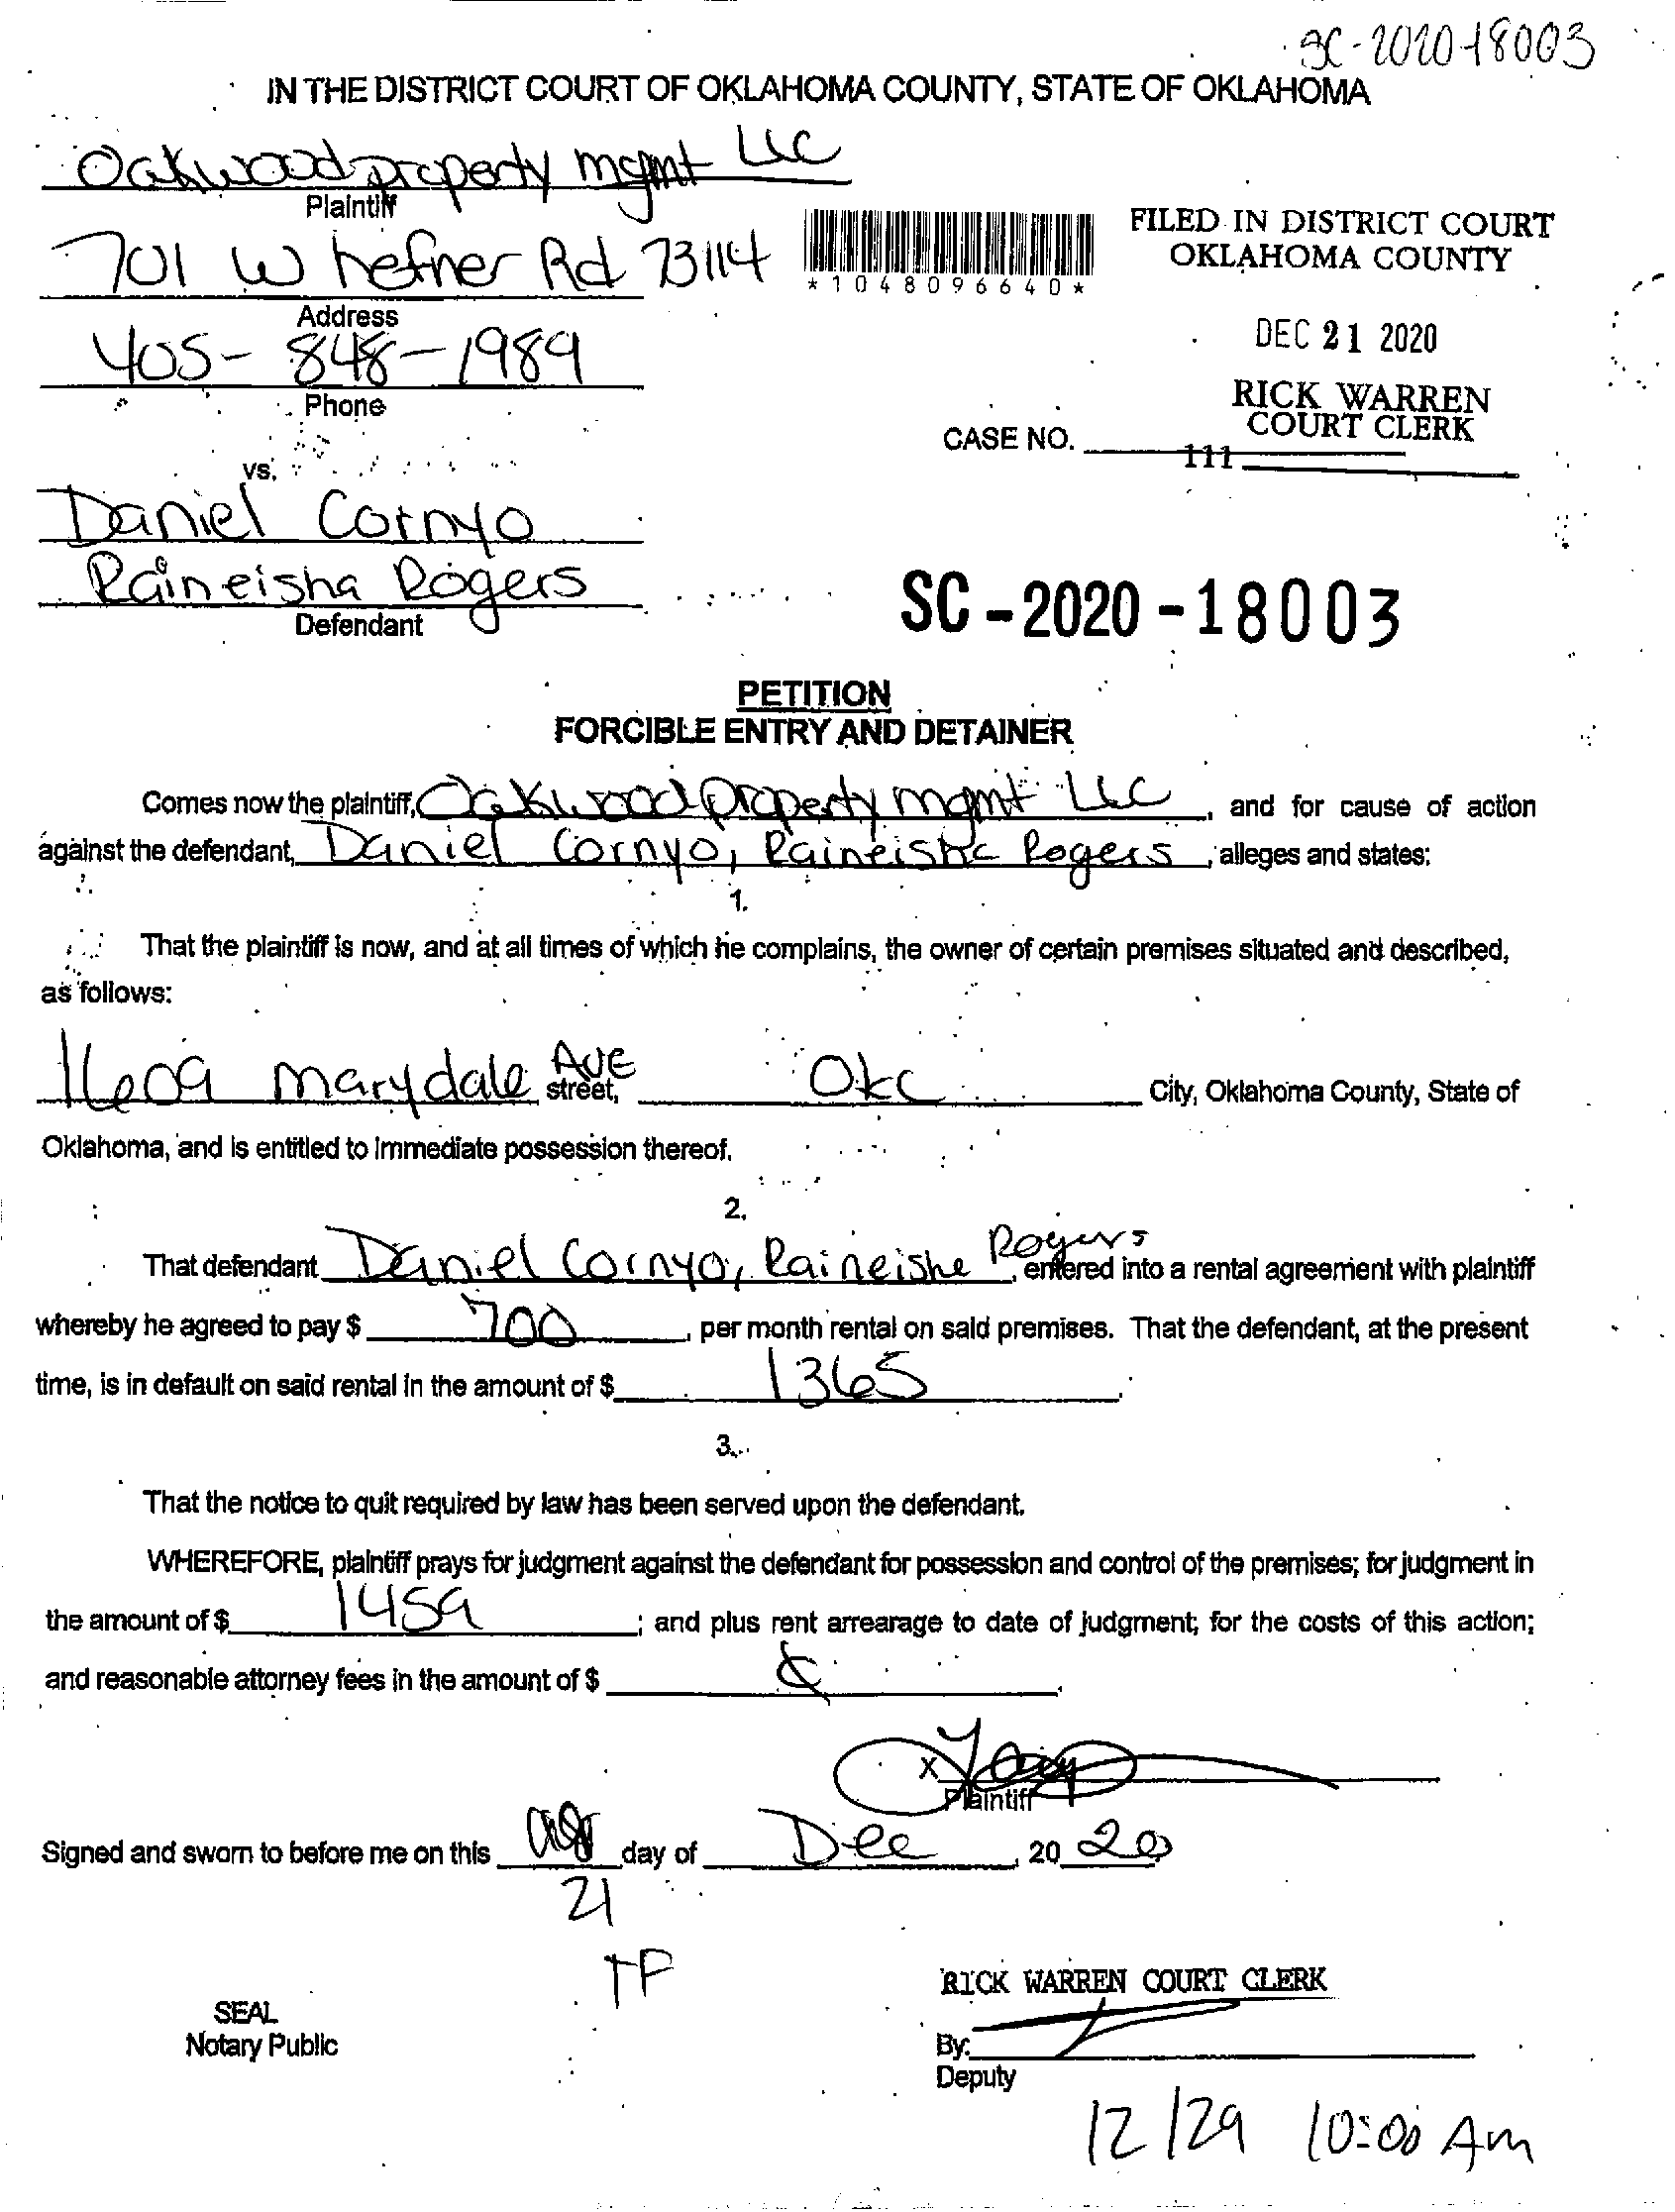 SC-2020-18003
IN THE DISTRICT COURT OF OKLAHOMA COUNTY, STATE OF OKLAHOMA
Oakwood property mgmt LLC
Plaintiff
701 W hefner Rd 73114
Address
405-848-1989
Phone
*1048096640*
FILED IN DISTRICT COURT
OKLAHOMA COUNTY
DEC 21 2020
RICK WARREN
COURT CLERK
CASE NO.
111
vs.
Daniel Cornyo
Raineisha Rogers
Defendant
SC-2020-18003
PETITION
FORCIBLE ENTRY AND DETAINER
Comes now the plaintiff, Oakwood property mgmt LLC, and for cause of action
against the defendant, Daniel Cornyo, Raineisha Rogers, alleges and states:
1.
That the plaintiff is now, and at all times of which he complains, the owner of certain premises situated and described,
as follows:
1609 marydale AVE street, OkC City, Oklahoma County, State of
Oklahoma, and is entitled to immediate possession thereof.
2.
That defendant Daniel Cornyo, Raineishe Rogers, entered into a rental agreement with plaintiff
whereby he agreed to pay $ 700, per month rental on said premises. That the defendant, at the present
time, is in default on said rental in the amount of $ 1365.
3.
That the notice to quit required by law has been served upon the defendant.
WHEREFORE, plaintiff prays for judgment against the defendant for possession and control of the premises; for judgment in
the amount of $ 1459; and plus rent arrearage to date of judgment; for the costs of this action;
and reasonable attorney fees in the amount of $
X
Plaintiff
Signed and sworn to before me on this day of Dec, 20 20
21
TP
RICK WARREN COURT CLERK
SEAL
Notary Public
By:
Deputy
12/29 10:00 Am